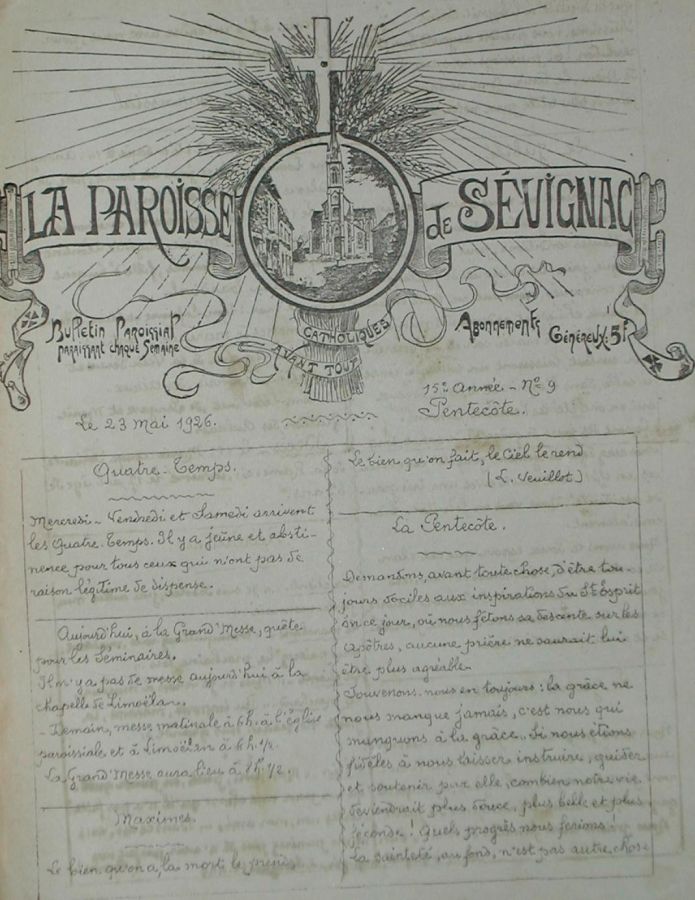 LA PAROISSE de SÉVIGNAC
Bulletin Paroissial
paraissant chaque Semaine
CATHOLIQUES
AVANT TOUT
Abonnements
Généreux: 5f
Le 23 Mai 1926.
15e Année - No 9
Pentecôte.
Quatre-Temps.
Mercredi - Vendredi et Samedi arrivent
les Quatre-Temps. Il y a jeûne et absti-
nence pour tous ceux qui n'ont pas de
raison légitime de dispense.
Aujourd'hui, à la Grand'Messe, quête
pour les Séminaires.
Il n'y a pas de messe aujourd'hui à la
chapelle de Limoëlan.
- Demain, messe matinale à 6h. à l'église
paroissiale et à Limoëlan à 6h. 1/2.
La Grand'Messe aura lieu à 8h. 1/2.
Maximes.
Le bien qu'on a, la mort le prend,
Le bien qu'on fait, le Ciel le rend
(L. Veuillot)
La Pentecôte.
Demandons, avant toute chose, d'être tou-
jours dociles aux inspirations du St Esprit
En ce jour, où nous fêtons sa descente sur les
apôtres, aucune prière ne saurait lui
être plus agréable.
Souvenons-nous en toujours: la grâce ne
nous manque jamais, c'est nous qui
manquons à la grâce. Si nous étions
fidèles à nous laisser instruire, guider
et soutenir par elle, combien notre vie
deviendrait plus douce, plus belle et plus
féconde! Quels progrès nous ferions!
La sainteté, au fond, n'est pas autre chose